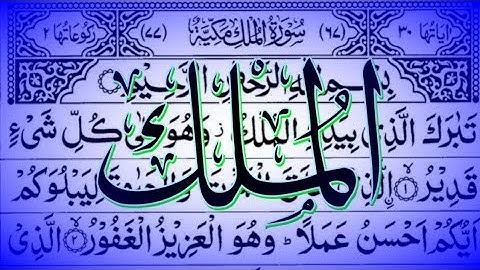 اٰیاتُهَا ٣٠ (٦٧) سُوْرَةُ الْمُلْكِ مَكِّيَّةٌ (٧٧) رُكُوْعَاتُهَا ٢
بِسْمِ اللهِ الرَّحْمٰنِ الرَّحِيْمِ
الْمُلْك
تَبٰرَكَ الَّذِيْ بِيَدِهِ الْمُلْكُ ز وَهُوَ كُلِّ شَيْءٍ
قَدِيْرُ ۝١ الَّذِيْ لِيَبْلُوَكُمْ
اَيُّكُمْ اَحْسَنُ عَمَلًا ؕ وَهُوَ الْعَزِيْزُ الْغَفُوْرُ ۝٢ الَّذِيْ